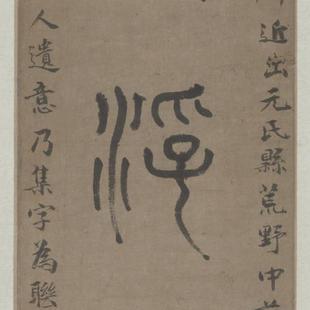 近出元氏縣荒野中
浮
人遺意乃集字為聯